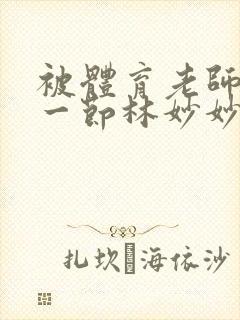 被體育老師
一節林妙妙
扎坎·海依沙